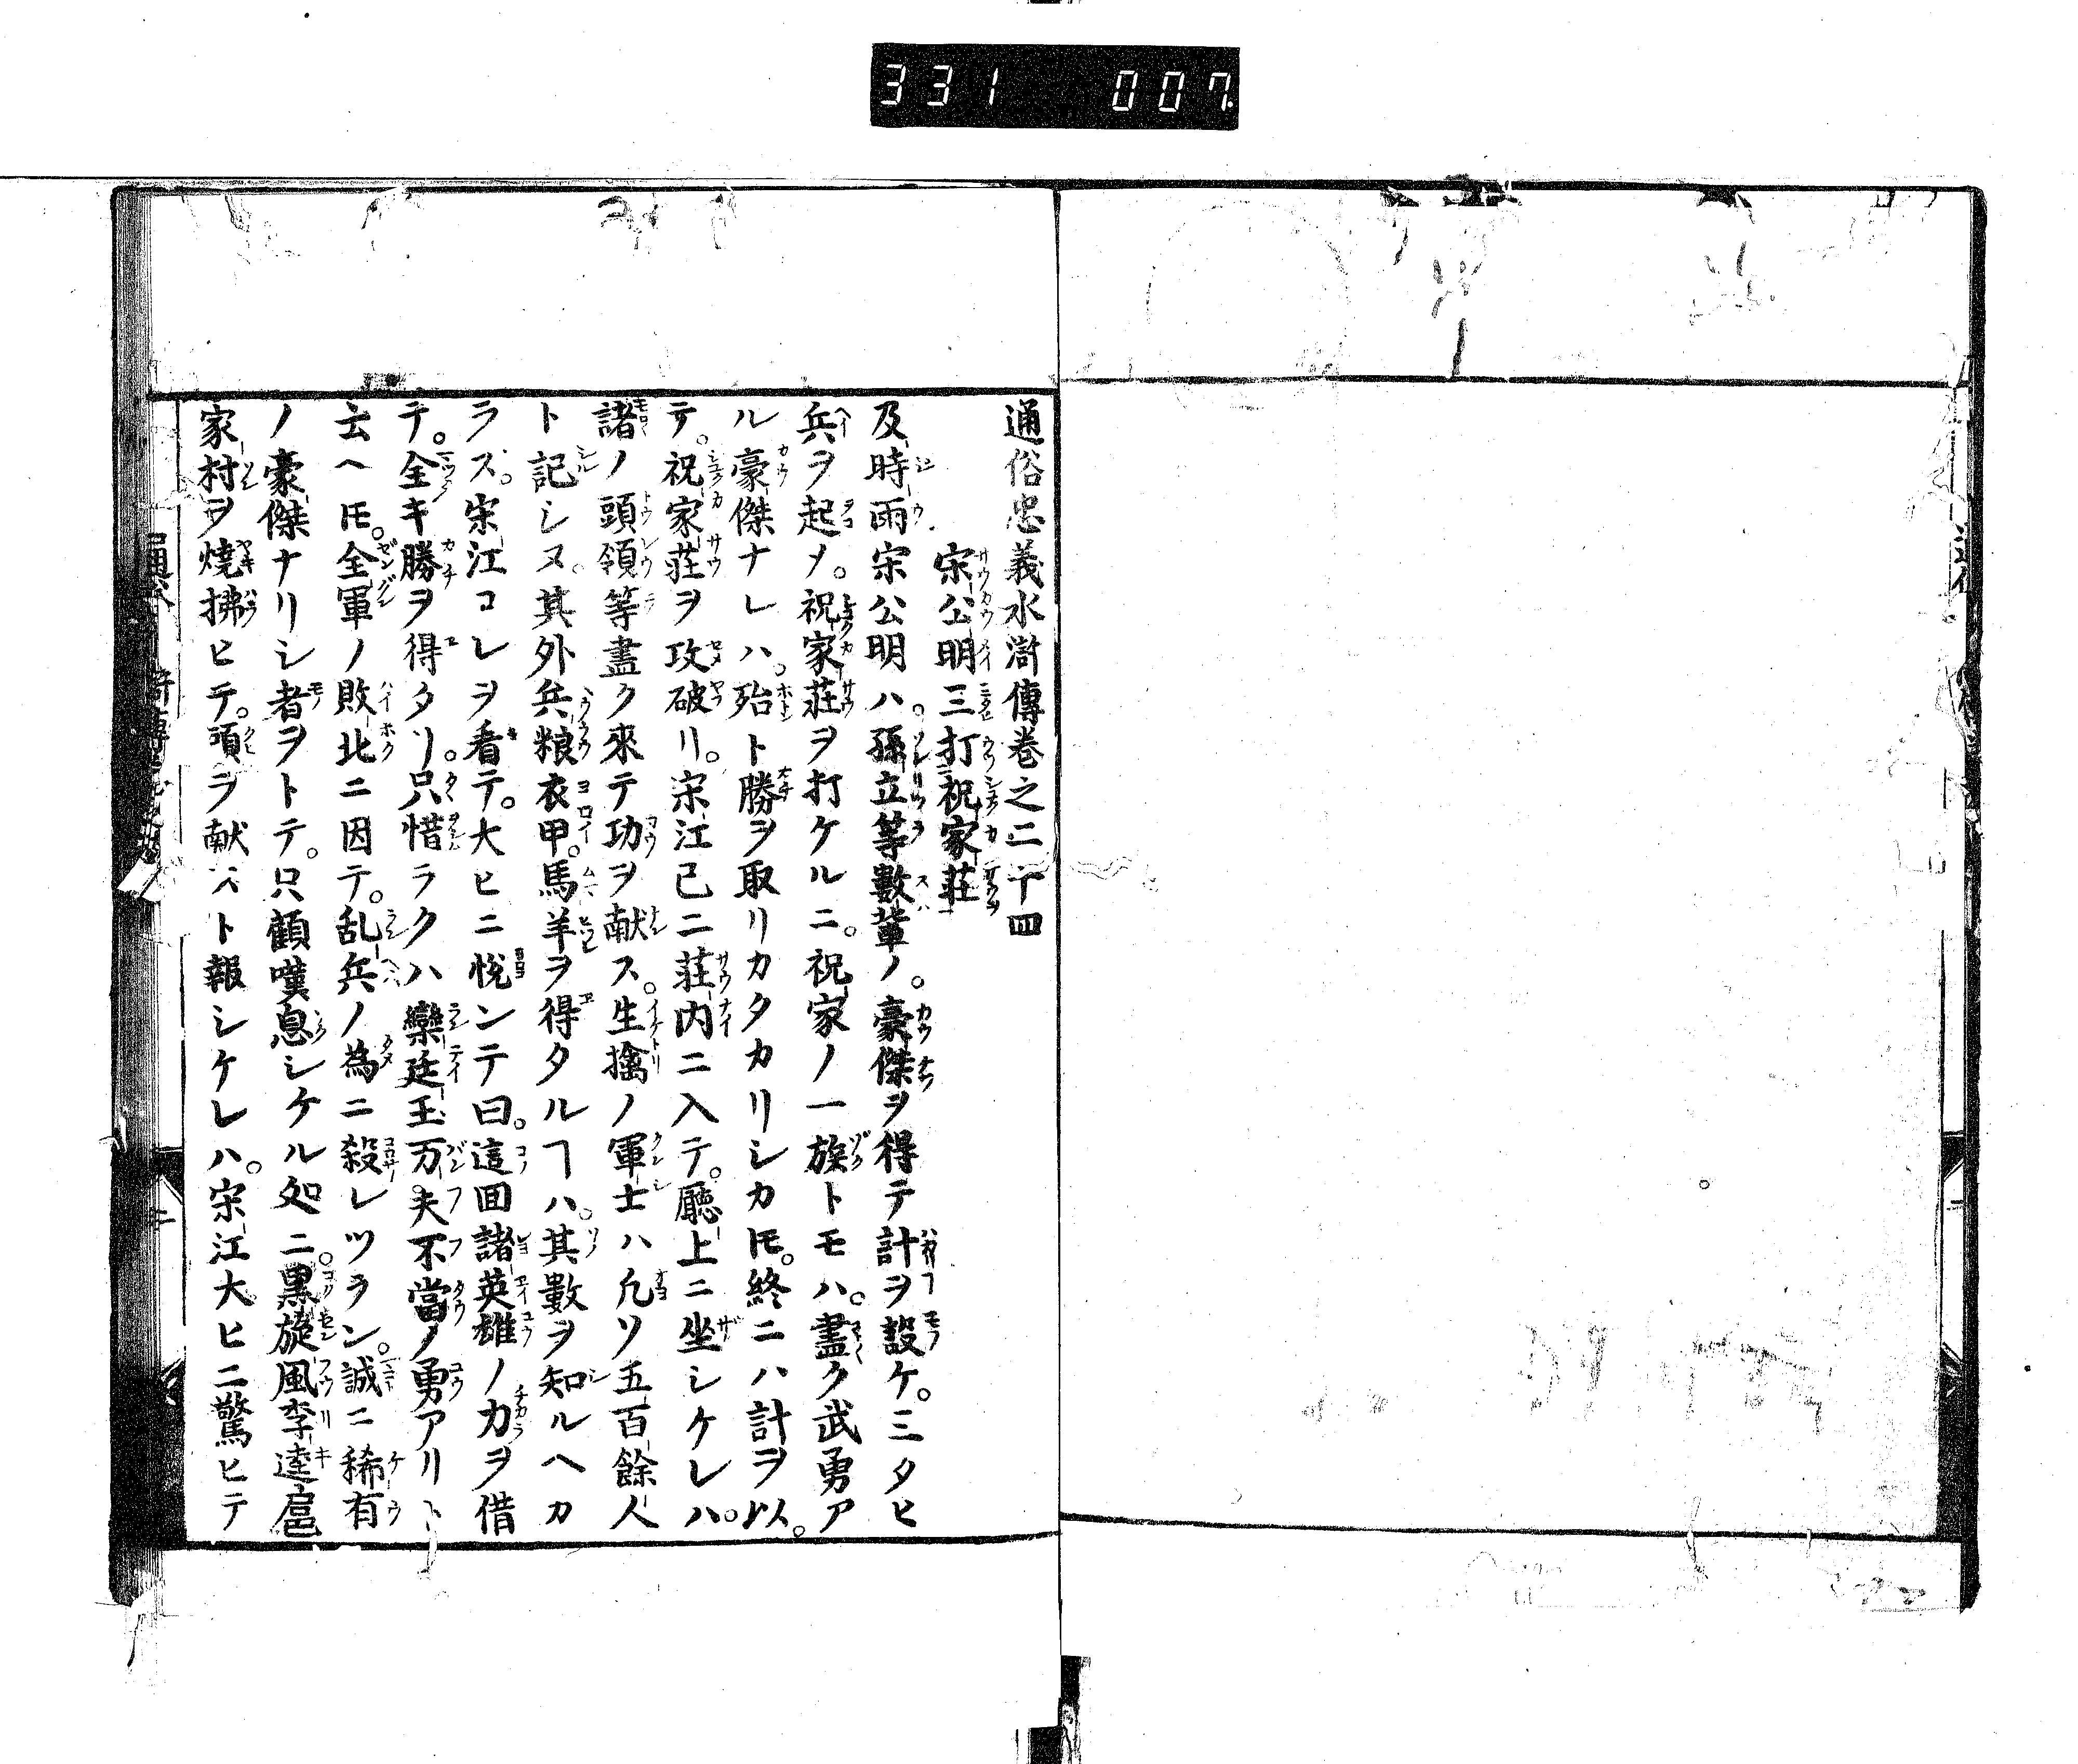 331 007
通俗忠義水滸傳巻之二十四
宋公明三打祝家莊
及時雨宋公明ハ。孫立等數輩ノ。豪傑ヲ得テ計ヲ設ケ。三タヒ
兵ヲ起メ。祝家莊ヲ打ケルニ。祝家ノ一族トモハ。盡ク武勇ア
ル豪傑ナレハ。殆ト勝ヲ取リカタカリシカ𪜈。終ニハ計ヲ以。
テ。祝家莊ヲ攻破リ。宋江已ニ莊内ニ入テ。廳上ニ坐シケレハ。
諸ノ頭領等盡ク來テ功ヲ献ス。生擒ノ軍士ハ凢ソ五百餘人
ト記シヌ。其外兵粮衣甲。馬羊ヲ得タルヿハ。其數ヲ知ルヘカ
ラス。宋江コレヲ看テ。大ヒニ悅ンテ曰。這囬諸英雄ノ力ヲ借
テ。全キ勝ヲ得タリ。只惜ラクハ欒廷玉万夫不當ノ勇アリト
云ヘ𪜈。全軍ノ敗北ニ因テ。乱兵ノ為ニ殺レツラン。誠ニ稀有
ノ豪傑ナリシ者ヲトテ。只顧嘆息シケル処ニ。黒旋風李逵扈
家村ヲ焼拂ヒテ。頭ヲ献スト報シケレハ。宋江大ヒニ驚ヒテ